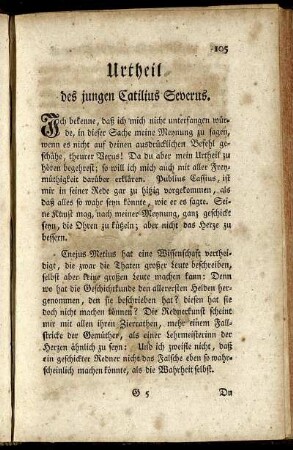 105
Urtheil
des jungen Catilius Severus.
Ich bekenne, daß ich mich nicht unterfangen wür-
de, in dieser Sache meine Meynung zu sagen,
wenn es nicht auf deinen ausdrücklichen Befehl ge-
schähe, theurer Verus! Da du aber mein Urtheil zu
hören begehrest; so will ich mich auch mit aller Frey-
müthigkeit darüber erklären. Publius Cassius, ist
mir in seiner Rede gar zu hitzig vorgekommen, als
daß alles so wahr seyn könnte, wie er es sagte. Sei-
ne Kunst mag, nach meiner Meynung, ganz geschickt
seyn, die Ohren zu kützeln; aber nicht das Herz zu
bessern.
Cnejus Metius hat eine Wissenschaft verthei-
digt, die zwar die Thaten großer Leute beschreiben,
selbst aber keine großen Leute machen kann: Denn
wo hat die Geschichtkunde den allerersten Helden her-
genommen, den sie beschrieben hat? diesen hat sie
doch nicht machen können! Die Rednerkunst scheint
mir mit allen ihren Zierrathen, mehr einem Fall-
stricke der Gemüther, als einer Lehrmeisterinn der
Herzen ähnlich zu seyn: Und ich zweifle nicht, daß
ein geschickter Redner nicht das Falsche eben so wahr-
scheinlich machen könnte, als die Wahrheit selbst.
G 5
Du